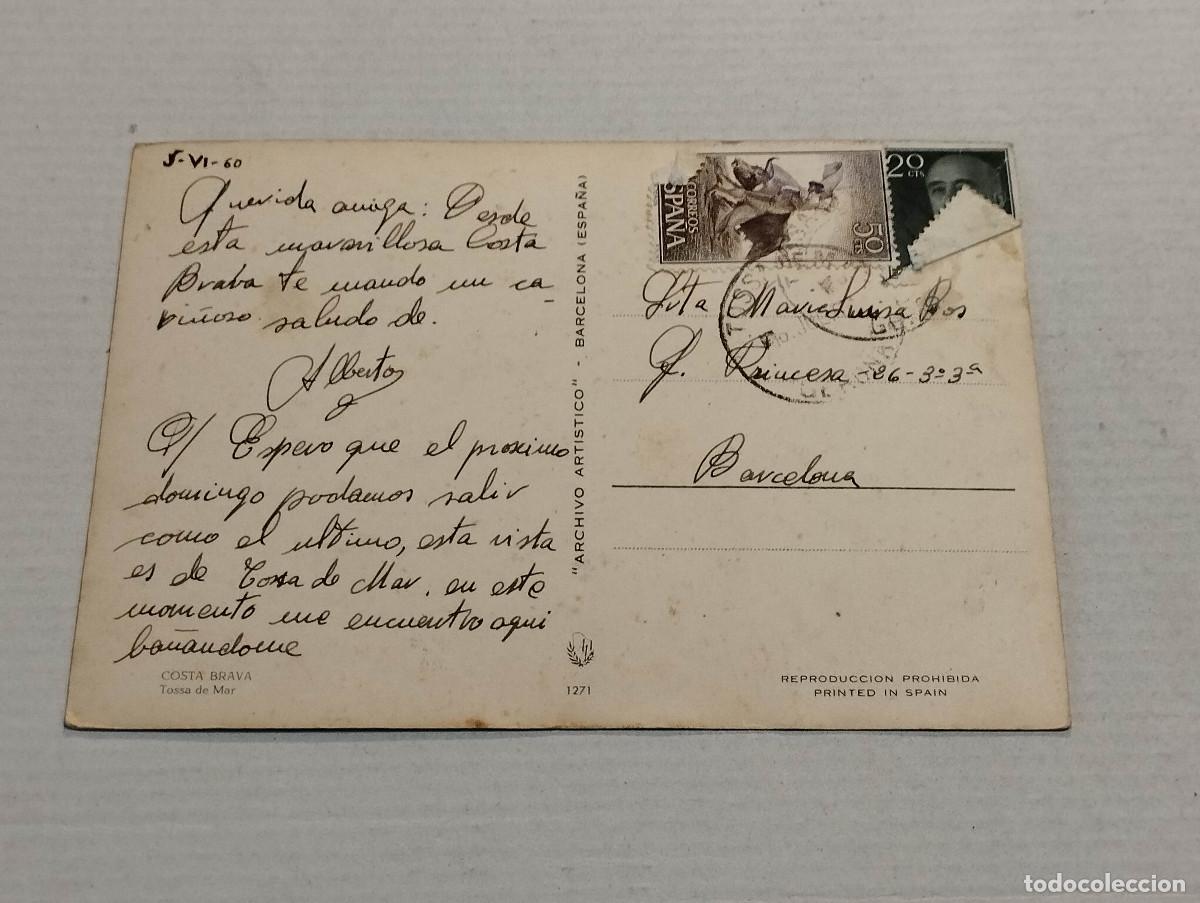 5-VI-60
Querida amiga: Desde
esta maravillosa Costa
Braba te mando un ca-
riñoso saludo de.
Alberto
P/ Espero que el proximo
domingo podamos salir
como el ultimo, esta vista
es de Tossa de Mar. en este
momento me encuentro aqui
bañandome
COSTA BRAVA
Tossa de Mar
"ARCHIVO ARTISTICO" - BARCELONA (ESPAÑA)
1271
CORREOS
ESPAÑA
50 CTS
20
CTS
TOSSA
GERONA
Srta Maria Luisa Bos
Princesa 26-3º3ª
Barcelona
REPRODUCCION PROHIBIDA
PRINTED IN SPAIN
todocoleccion